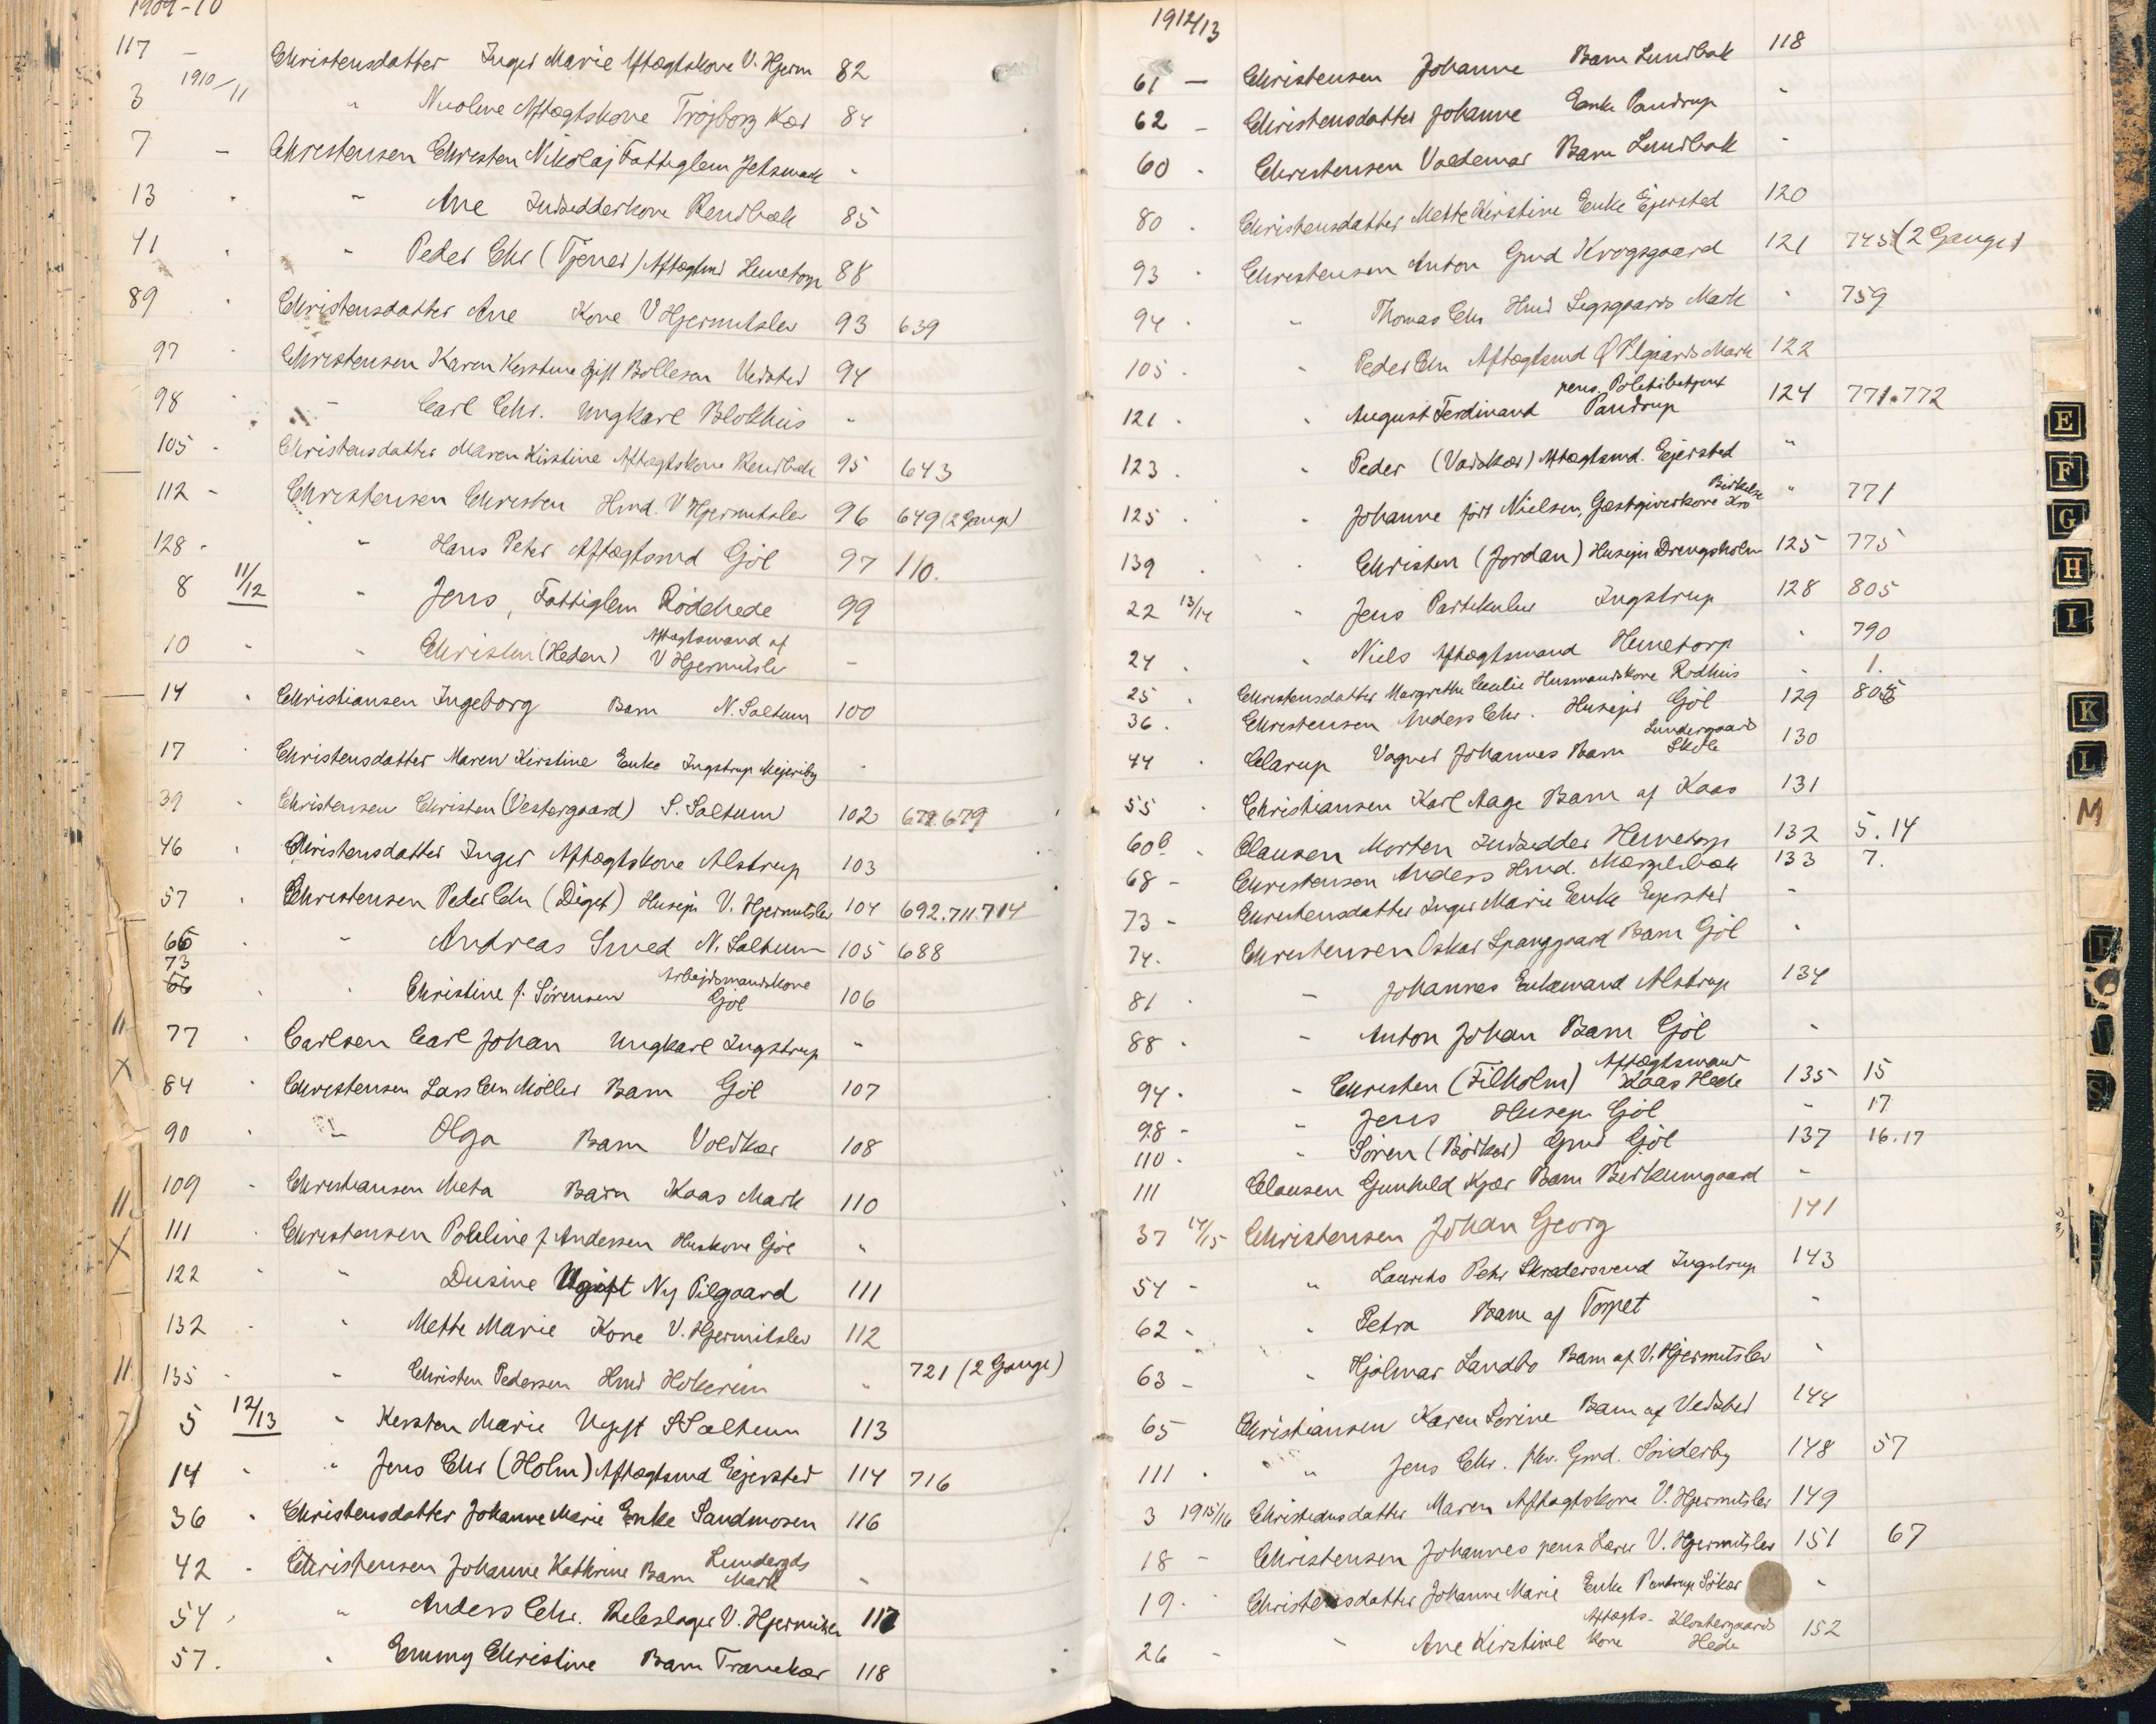 1909-10
117 — Christensdatter Inger Marie Aftægtskone V. Hjerm 82
3 1910/11 " Nicoline Aftægtskone Trøjborg Kær 84
7 — Christensen Christen Nikolaj Fattiglem Jetsmark "
13 " " Ane Indsidderkone Rendbæk 85
41 " " Peder Chr (Tjener) Aftægtsmd Hunetorp 88
89 " Christensdatter Ane Kone V Hjermitslev 93 639
97 " Christensen Karen Kirstine Gift Bollesen Vedsted 94
98 " Carl Chr. Ungkarl Blokhus "
105 - Christensdatter Maren Kirstine Aftægtskone Rendbæk 95 643
112 - Christensen Christen Hmd. V Hjermitslev 96 649 (2 Gange)
128 - " Hans Peter Aftægtsmd Gjöl 97 110.
8 11/12 " Jens, Fattiglem Rödehede 99
10 " " Christen (Heden) Aftægtsmand af V Hjermitslev —
14 " Christiansen Ingeborg Barn N. Saltum 100
17 " Christensdatter Maren Kirstine Enke Ingstrup Mejeriby "
39 " Christensen Christen (Vestergaard) S. Saltum 102 672.679
46 " Christensdatter Inger Aftægtskone Alstrup 103
57 " Christensen Peder Chr (Diget) Husejer V. Hjermitslev 104 692.711.714
65 " " Andreas Smed N. Saltum 105 688
73
66 " " Christine f. Sörensen Arbejdsmandskone Gjöl 106
77 " Carlsen Carl Johan Ungkarl Ingstrup "
84 " Christensen Lars Chr Möller Barn Gjöl 107
90 " " Olga Barn Voldkær 108
109 - Christiansen Meta Barn Kaas Mark 110
111 " Christensen Pouline f. Andersen Huskone Gjöl "
122 " " Dusine Ugift Ny Pilgaard 111
132 " " Mette Marie Kone V. Hjermitslev 112
135 " " Christen Pedersen Hmd Hökerim " 721 (2 Gange)
5 12/13 " Kirsten Marie Ugift S Saltum 113
14 " " Jens Chr (Holm) Aftægtsmd Ejersted 114 716
36 " Christensdatter Johanne Marie Enke Sandmosen 116
42 - Christensen Johanne Kathrine Barn Lundergds Mark "
54 " " Anders Chr. Rebslager V. Hjermitslev 117
57. " Emmy Christine Barn Tranekær 118
1912/13
61 — Christensen Johanne Barn Lundbak 118
62 — Christensdatter Johanne Enke Pandrup "
60 " Christensen Valdemar Barn Lundbak "
80 " Christensdatter Mette Kirstine Enke Ejersted 120
93 " Christensen Anton Gmd Krogsgaard 121 745 (2 Gange)
94 " " Thomas Chr Hmd Legsgaards Mark " 759
105 " " Peder Chr Aftægtsmd Ø Pilgaards Mark 122
121 " " August Ferdinand pens. Politibetjent Pandrup 124 771.772
123 " " Peder (Vadskær) Aftægtsmd. Ejersted "
125 " " Johanne född Nielsen, Gæstgiverkone Birkelse Kro " 771
139 " " Christen (Jordan) Husejer Drengsholm 125 775
22 13/14 " Jens Partikulier Ingstrup 128 805
24 " " Niels Aftægtsmand Hunetorp " 790
25 " Christensdatter Margrethe Cecilie Husmandskone Rödhus " 1.
36 . Christensen Anders Chr. Husejer Gjöl 129 805
44 " Clarup Vagner Johannes Barn Lundergaard Skole 130
55 " Christiansen Karl Aage Barn af Kaas 131
60b " Clausen Morten Indsidder Hunetorp 132 5.14
68 - Christensen Anders Hmd. Mærgelbæk 133 7.
73 - Christensdatter Inger Marie Enke Ejersted "
74. Christensen Oskar Spanggaard Barn Gjöl "
81 " — Johannes Enkemand Alstrup 134
88 " — Anton Johan Barn Gjöl "
94 . " Christen (Filholm) Aftægtsmand Kaas Hede 135 15
98 - " Jens Husejer Gjöl " 17
110 . " Sören (Bödker) Gmd Gjöl 137 16.17
111 Clausen Gunhild Kjær Barn Birkumgaard "
37 14/15 Christensen Johan Georg 141
54 - " Laurits Peder Skrædersvend Ingstrup 143
62 " " Petra Barn af Torpet "
63 — " Hjalmar Landbo Barn af V. Hjermitslev "
65 Christiansen Karen Sörine Barn af Vedsted 144
111 " " Jens Chr. fhv. Gmd. Sönderby 148 57
3 1915/16 Christensdatter Maren Aftægtskone V. Hjermitslev 149
18 - Christensen Johannes pens Lærer V. Hjermitslev 151 67
19. Christensdatter Johanne Marie Enke Pandrup "
26 - " Ane Kirstine Aftægtskone Klostergaards Hede 152
E
F
G
H
I
K
L
M
S